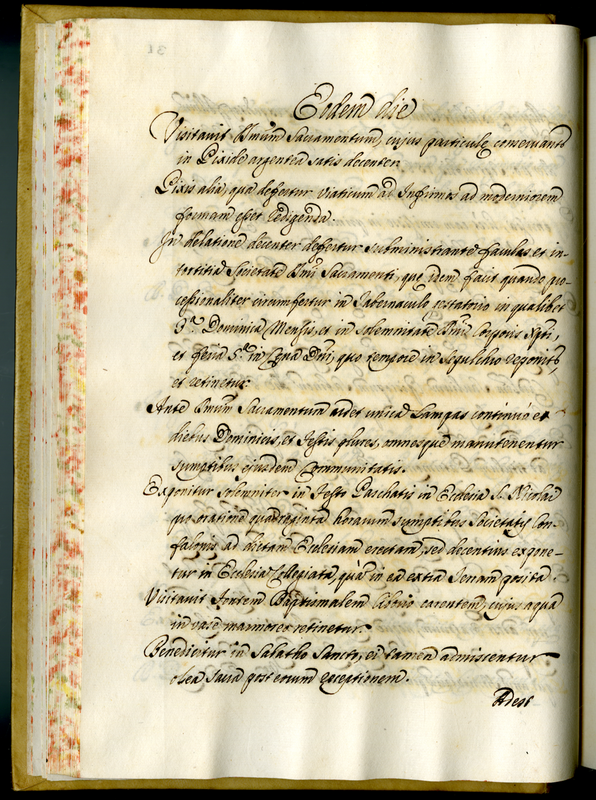 Eodem die
Visitavit Smum Sacramentum, cujus particulę conservantr
in Pixide argentea satis decenter.
Pixis alia, qua defertur Viaticum ad Infirmos ad moderniorem
formam esset redigenda.
In delatione decenter defertur subministrante faculas, et in-
tortitia Societate Smi Sacramenti, que idem facit quando pro-
cessionaliter circumfertur in Tabernaculo ostatorio in qualibet
3a Dominica Mensis, et in solemnitate Smi Corporis Xpti,
et feria 5a in Cęna Dni, quo tempore in Sepulchro reponitr,
et retinetur.
Ante Smum Sacramentum ardet unica Lampas continuo et
diebus Dominicis, et Festis plures, omnesque manutenentur
sumptibus ejusdem Communitatis.
Exponitur solemniter in Festo Paschatis in Ecclesia S. Nicolai
pro oratione quadraginta horarum sumptibus Societatis Con-
falonis ad dictam Ecclesiam erectam, sed decentius expone-
tur in Ecclesia Collegiata, quia in ea extra Senam posita.
Visitavit Fontem Baptismalem Ciborio carentem, cujus aqua
in vase marmoreo retinetur.
Benedicitur in Sabatho Sancto, ei tamen admiscentur
olea Sacra post eorum exceptionem.